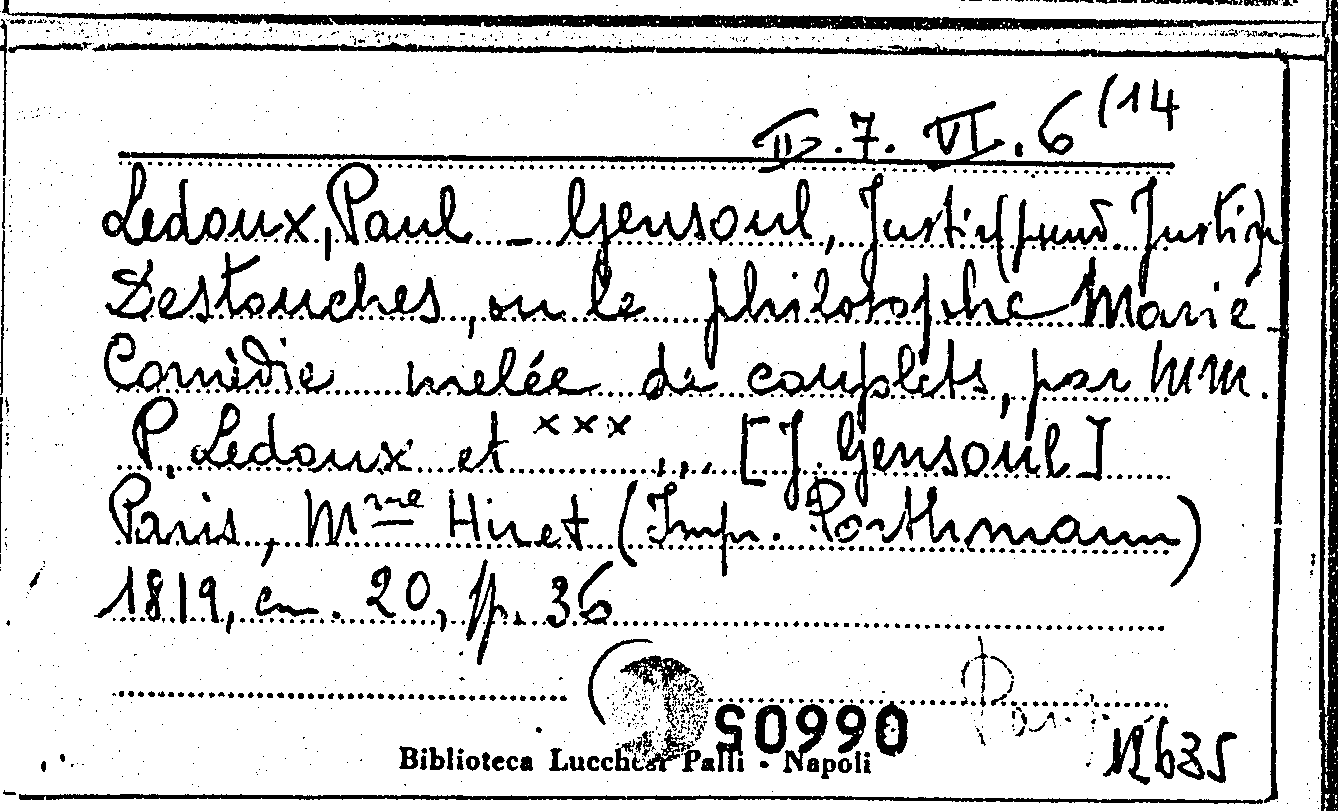 II.7.VI.6(14
Ledoux, Paul - Gensoul, Justin (pseud. Justin)
Destouches, ou le philosophe Marié
Comèdie melée de couplets, par MM.
P. Ledoux et xxx ... [J. Gensoul]
Paris, Mme Huet (Imp. Porthmann)
1819, cm. 20, pp. 36
50990
Biblioteca Lucchesi Palli - Napoli
12635